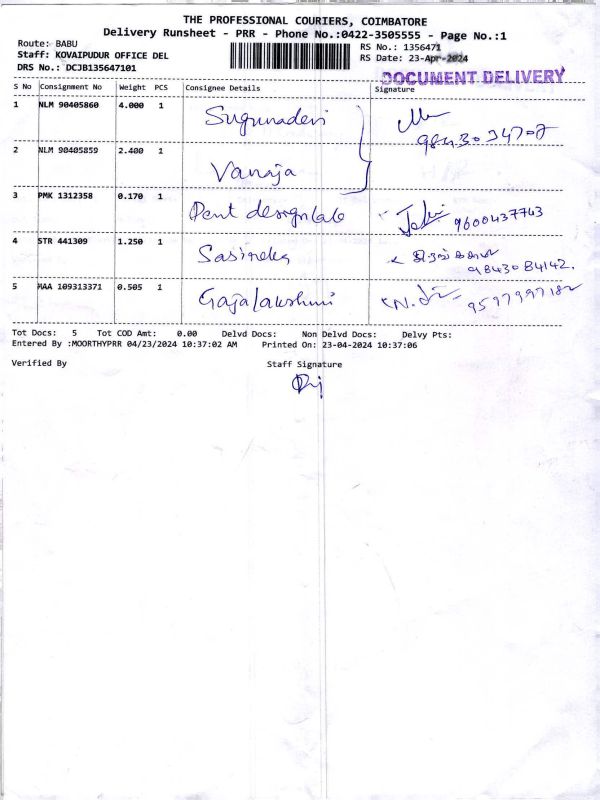 THE PROFESSIONAL COURIERS, COIMBATORE
Delivery Runsheet - PRR - Phone No.:0422-3505555 - Page No.:1
Route: BABU
RS No.: 1356471
Staff: KOVAIPUDUR OFFICE DEL
RS Date: 23-Apr-2024
DRS No.: DCJB135647101
DOCUMENT DELIVERY
S No Consignment No Weight PCS Consignee Details Signature
1 NLM 90405860 4.000 1 Sugunadevi
2 NLM 90405859 2.400 1 Vanaja
3 PMK 1312358 0.170 1 designlab 9600437743
4 STR 441309 1.250 1 9843084142.
5 MAA 109313371 0.505 1 Gajalakshmi
Tot Docs: 5 Tot COD Amt: 0.00 Delvd Docs: Non Delvd Docs: Delvy Pts:
Entered By :MOORTHYPRR 04/23/2024 10:37:02 AM Printed On: 23-04-2024 10:37:06
Verified By Staff Signature